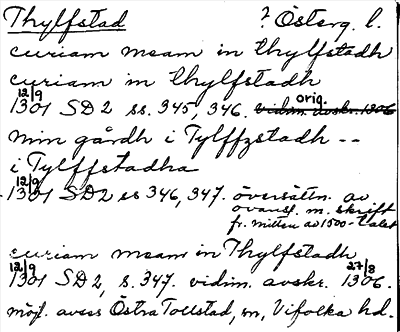 Thylfstad ? Österg. l.
curiam meam in thylfstadh
curiam in thylfstadh
12/9 1301 SD 2 ss. 345, 346. vidim. avskr. 1306 orig.
min gårdh i Tylffzstadh --
i Tylffstadha
12/9 1301 SD 2 ss 346, 347. översättn. av
ovanst. m. skrift
fr. mitten av 1500-talet
curiam meam in Thylfstadh
12/9 1301 SD 2, s. 347. vidim. avskr. 27/8 1306.
möjl. avses Östra Tollstad, sn, Vifolka hd.